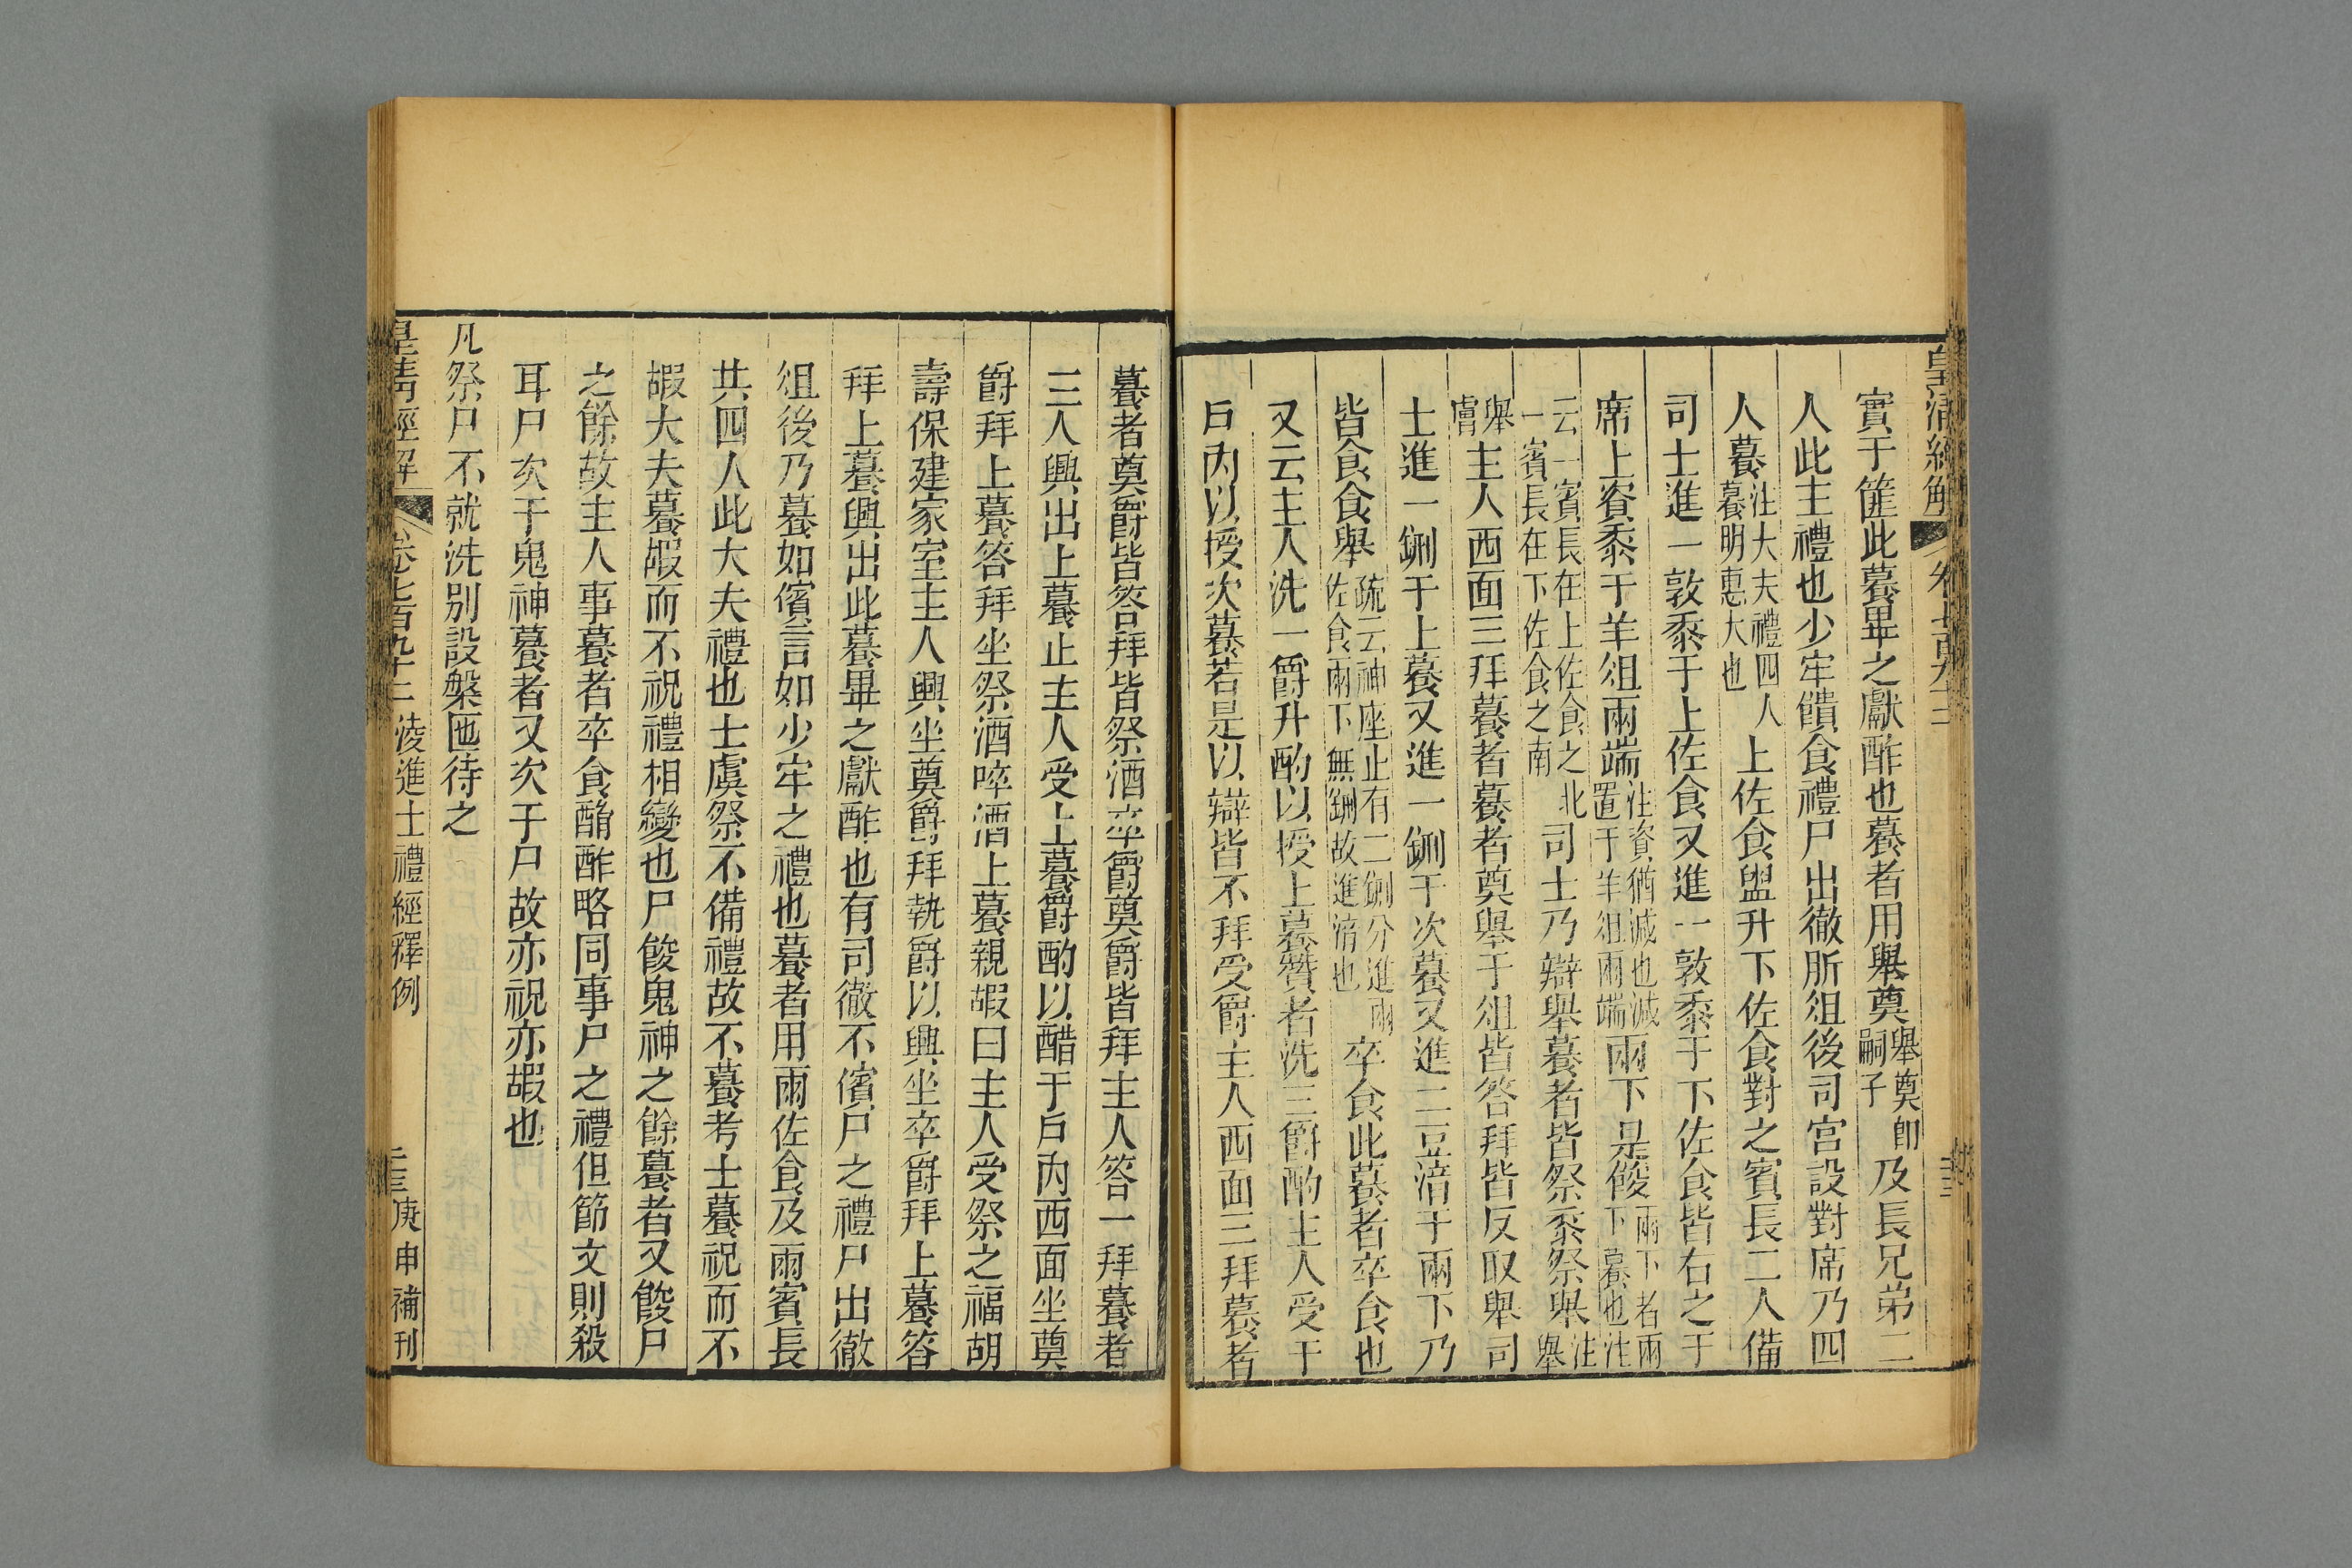 皇清經解 卷七百九十二
實于篚此䭆畢之獻酢也䭆者用舉奠舉奠卽嗣子及長兄弟二
人此主禮也少牢饋食禮尸出徹肵俎後司宮設對席乃四
人䭆注大夫禮四人䭆明惠大也上佐食盥升下佐食對之賓長二人備
司士進一敦黍于上佐食又進一敦黍于下佐食皆右之于
席上資黍于羊俎兩端注資猶減也減置于羊俎兩端兩下是餕兩下者兩下䭆也注
云一賓長在上佐食之北一賓長在下佐食之南司士乃辯舉䭆者皆祭黍祭舉注舉
舉膚主人西面三拜䭆者䭆者奠舉于俎皆答拜皆反取舉司
士進一鉶于上䭆又進一鉶于次䭆又進二豆湆于兩下乃
皆食食舉疏云神座止有二鉶分進兩佐食兩下無鉶故進湆也卒食此䭆者卒食也
又云主人洗一爵升酌以授上䭆贊者洗三爵酌主人受于
戶內以授次䭆若是以辯皆不拜受爵主人西面三拜䭆者
䭆者奠爵皆答拜皆祭酒卒爵奠爵皆拜主人答一拜䭆者
三人興出上䭆止主人受上䭆爵酌以醋于戶內西面坐奠
爵拜上䭆答拜坐祭酒啐酒上䭆親嘏曰主人受祭之福胡
壽保建家室主人興坐奠爵拜執爵以興坐卒爵拜上䭆答
拜上䭆興出此䭆畢之獻酢也有司徹不儐尸之禮尸出徹
俎後乃䭆如儐言如少牢之禮也䭆者用兩佐食及兩賓長
共四人此大夫禮也士虞祭不備禮故不䭆考士䭆祝而不
嘏大夫䭆嘏而不祝禮相變也尸餕鬼神之餘䭆者又餕尸
之餘故主人事䭆者卒食酳酢略同事尸之禮但節文則殺
耳尸次于鬼神䭆者又次于尸故亦祝亦嘏也
凡祭尸不就洗別設槃匜待之
皇清經解 卷七百九十二 淩進士禮經釋例 三 庚申補刊